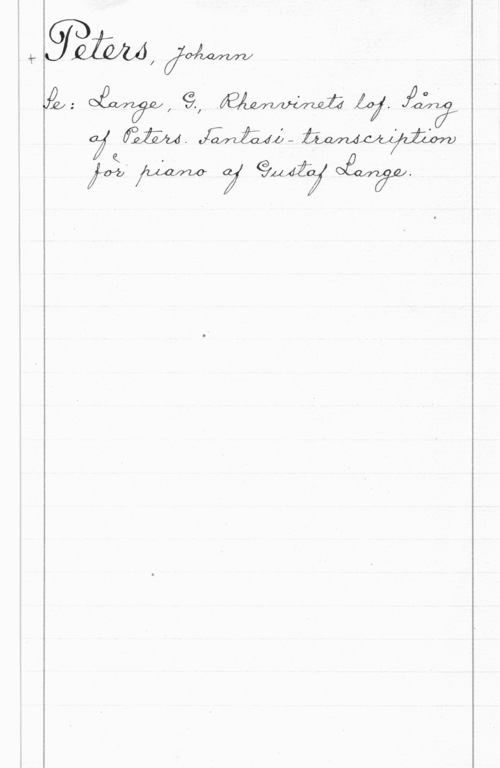 + Peters, Johann
Se: Lange, G., Rhenvinets lof. Sång
af Peters. Fantasi-transcription
för piano af Gustaf Lange.